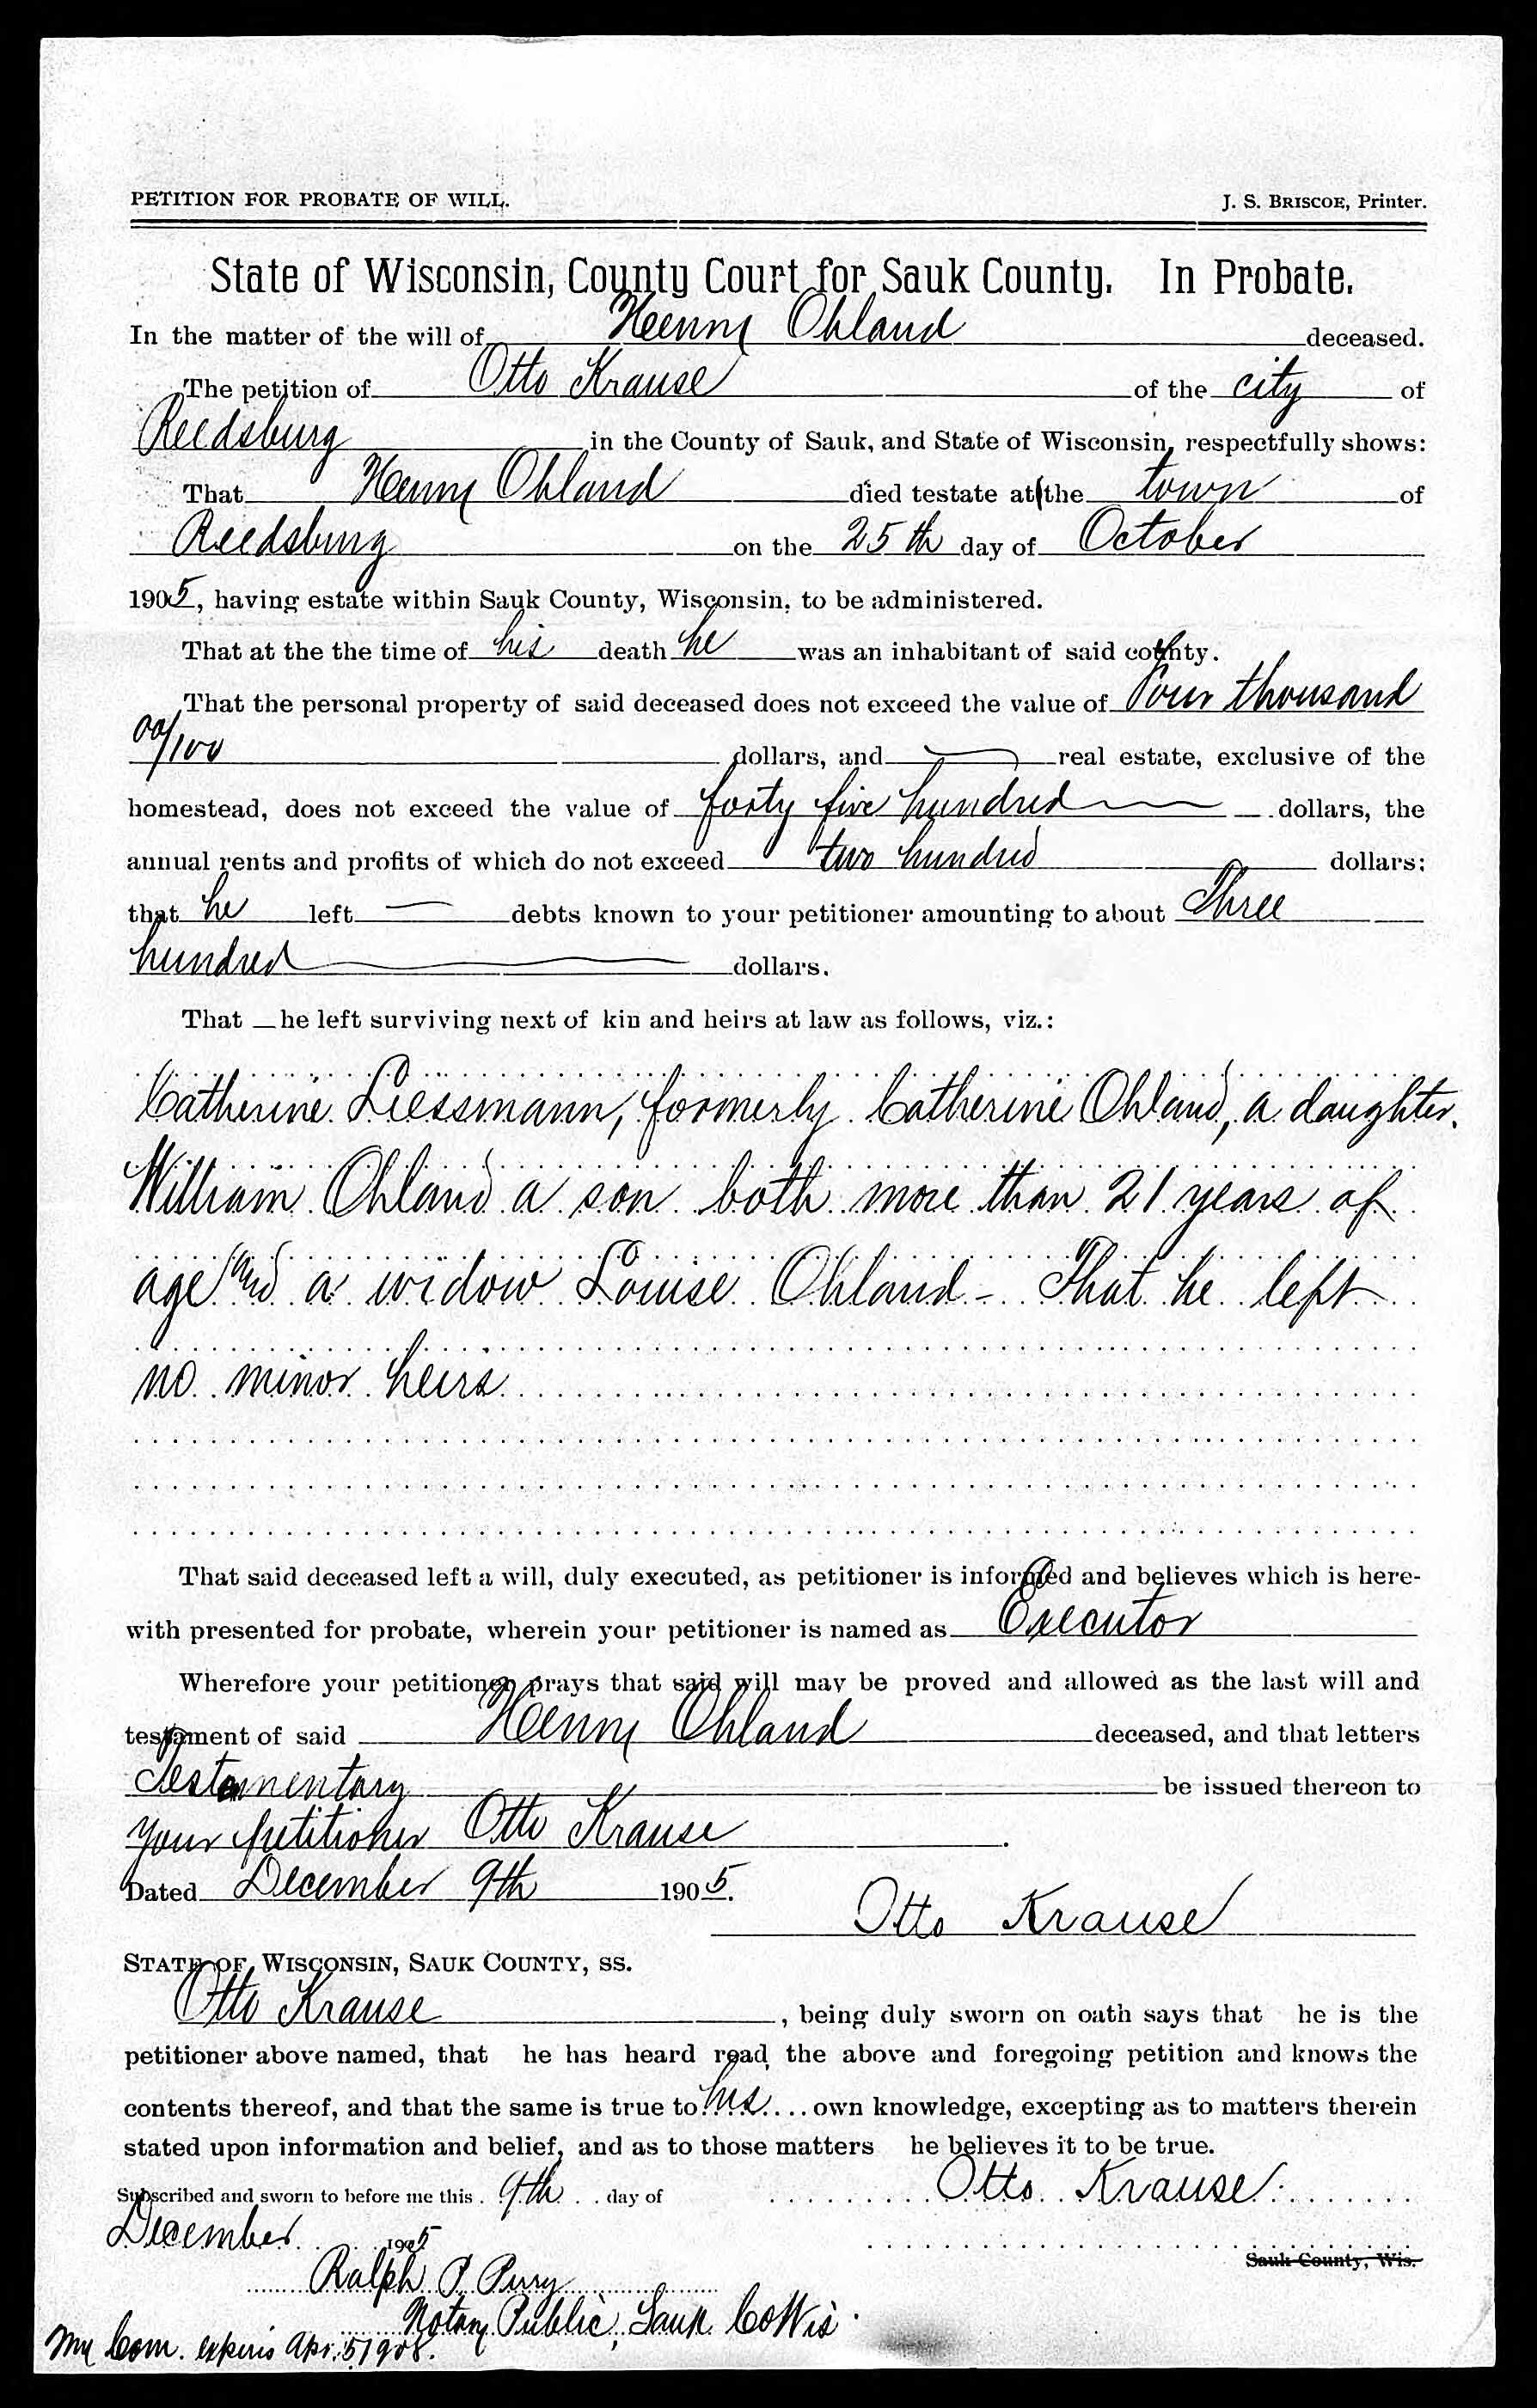 PETITION FOR PROBATE OF WILL. J. S. BRISCOE, Printer.
State of Wisconsin, County Court for Sauk County. In Probate.
In the matter of the will of Henry Ohland deceased.
The petition of Otto Krause of the city of
Reedsburg in the County of Sauk, and State of Wisconsin, respectfully shows:
That Henry Ohland died testate at the town of
Reedsburg on the 25th day of October
1905, having estate within Sauk County, Wisconsin, to be administered.
That at the the time of his death he was an inhabitant of said county.
That the personal property of said deceased does not exceed the value of Four thousand
00/100 dollars, and real estate, exclusive of the
homestead, does not exceed the value of forty five hundred dollars, the
annual rents and profits of which do not exceed two hundred dollars;
that he left — debts known to your petitioner amounting to about Three
hundred dollars.
That he left surviving next of kin and heirs at law as follows, viz.:
Catherine Liessmann, formerly Catherine Ohland, a daughter.
William Ohland a son both more than 21 years of
age and a widow Louise Ohland - That he left
no minor heirs
That said deceased left a will, duly executed, as petitioner is informed and believes which is here-
with presented for probate, wherein your petitioner is named as Executor
Wherefore your petitioner prays that said will may be proved and allowed as the last will and
testament of said Henry Ohland deceased, and that letters
Testamentary be issued thereon to
your petitioner Otto Krause.
Dated December 9th 1905.
Otto Krause
STATE OF WISCONSIN, SAUK COUNTY, SS.
Otto Krause, being duly sworn on oath says that he is the
petitioner above named, that he has heard read the above and foregoing petition and knows the
contents thereof, and that the same is true to his own knowledge, excepting as to matters therein
stated upon information and belief, and as to those matters he believes it to be true.
Subscribed and sworn to before me this 9th day of Otto Krause
December 1905
Sauk County, Wis.
Ralph P. Perry
Notary Public, Sauk Co Wis.
My Com. expires Apr. 5 1908.